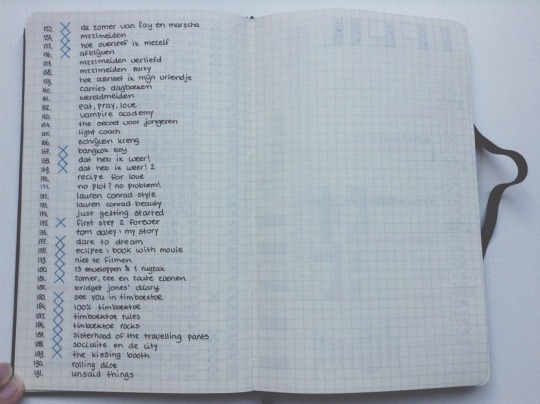 153. X de zomer van fay en marscha
154. X mzzlmeiden
155. X hoe overleef ik mezelf
156. X afblijven
157. mzzlmeiden verliefd
158. mzzlmeiden party
159. hoe overleef ik mijn vriendje
160. carries dagboeken
161. wereldmeiden
162. eat, pray, love
163. vampire academy
164. the secret voor jongeren
165. light coach
166. schrijven kreng
167. X bangkok boy
168. X dat heb ik weer!
169. X dat heb ik weer! 2
170. recipe for love
171. no plot? no problem!
172. lauren conrad style
173. lauren conrad beauty
174. just getting started
175. X first step 2 forever
176. tom daley: my story
177. X dare to dream
178. X eclipse: book with movie
179. X niet te filmen
180. X 13 enveloppen & 1 rugzak
181. X zomer, zee en zoute zoenen
182. bridget jones' diary
183. X see you in timboektoe
184. X 100% timboektoe
185. X timboektoe rules
186. X timboektoe rocks
187. X sisterhood of the travelling pants
188. X socialite en de city
189. X the kissing booth
190. rolling dice
191. unsaid things